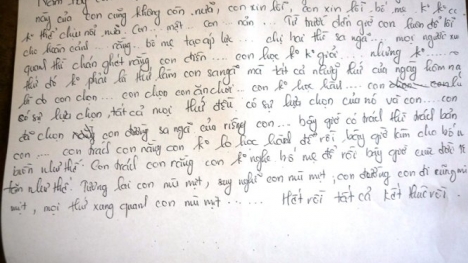 này của con cũng không còn nữa, con xin lỗi, con xin lỗi, bố mẹ k
k thể chịu nổi nữa. Con ... mệt ... con ... nản ... Từ trước đến giờ con luôn đổ lỗi
cho hoàn cảnh ... rằng bố mẹ tạo áp lực ... chị hai thế sa ngã ... mọi người xung
quanh thì chán ghét rằng con điên ... con học k giỏi ... nhưng k
thứ đó k phải là thứ làm con sa ngã mà tất cả những thứ của ngày hôm nay
là do con chọn ... con chọn con ăn chơi ... con k học hành ... con
có sự lựa chọn, tất cả mọi thứ đều có sự lựa chọn của nó và con ... con
đã chọn con đường sa ngã của riêng con ... bây giờ có trách thì trách bản
con ... con trách con rằng con k lo học hành để rồi bây giờ làm cho bố mẹ
buồn như thế. Con trách con rằng con k nghe bố mẹ để rồi bây giờ
như thế. Tương lai con mù mịt, suy nghĩ con mù mịt, con đường con đi cũng mù
mịt, mọi thứ xung quanh con mù mịt ...... Hết rồi tất cả kết thúc rồi.